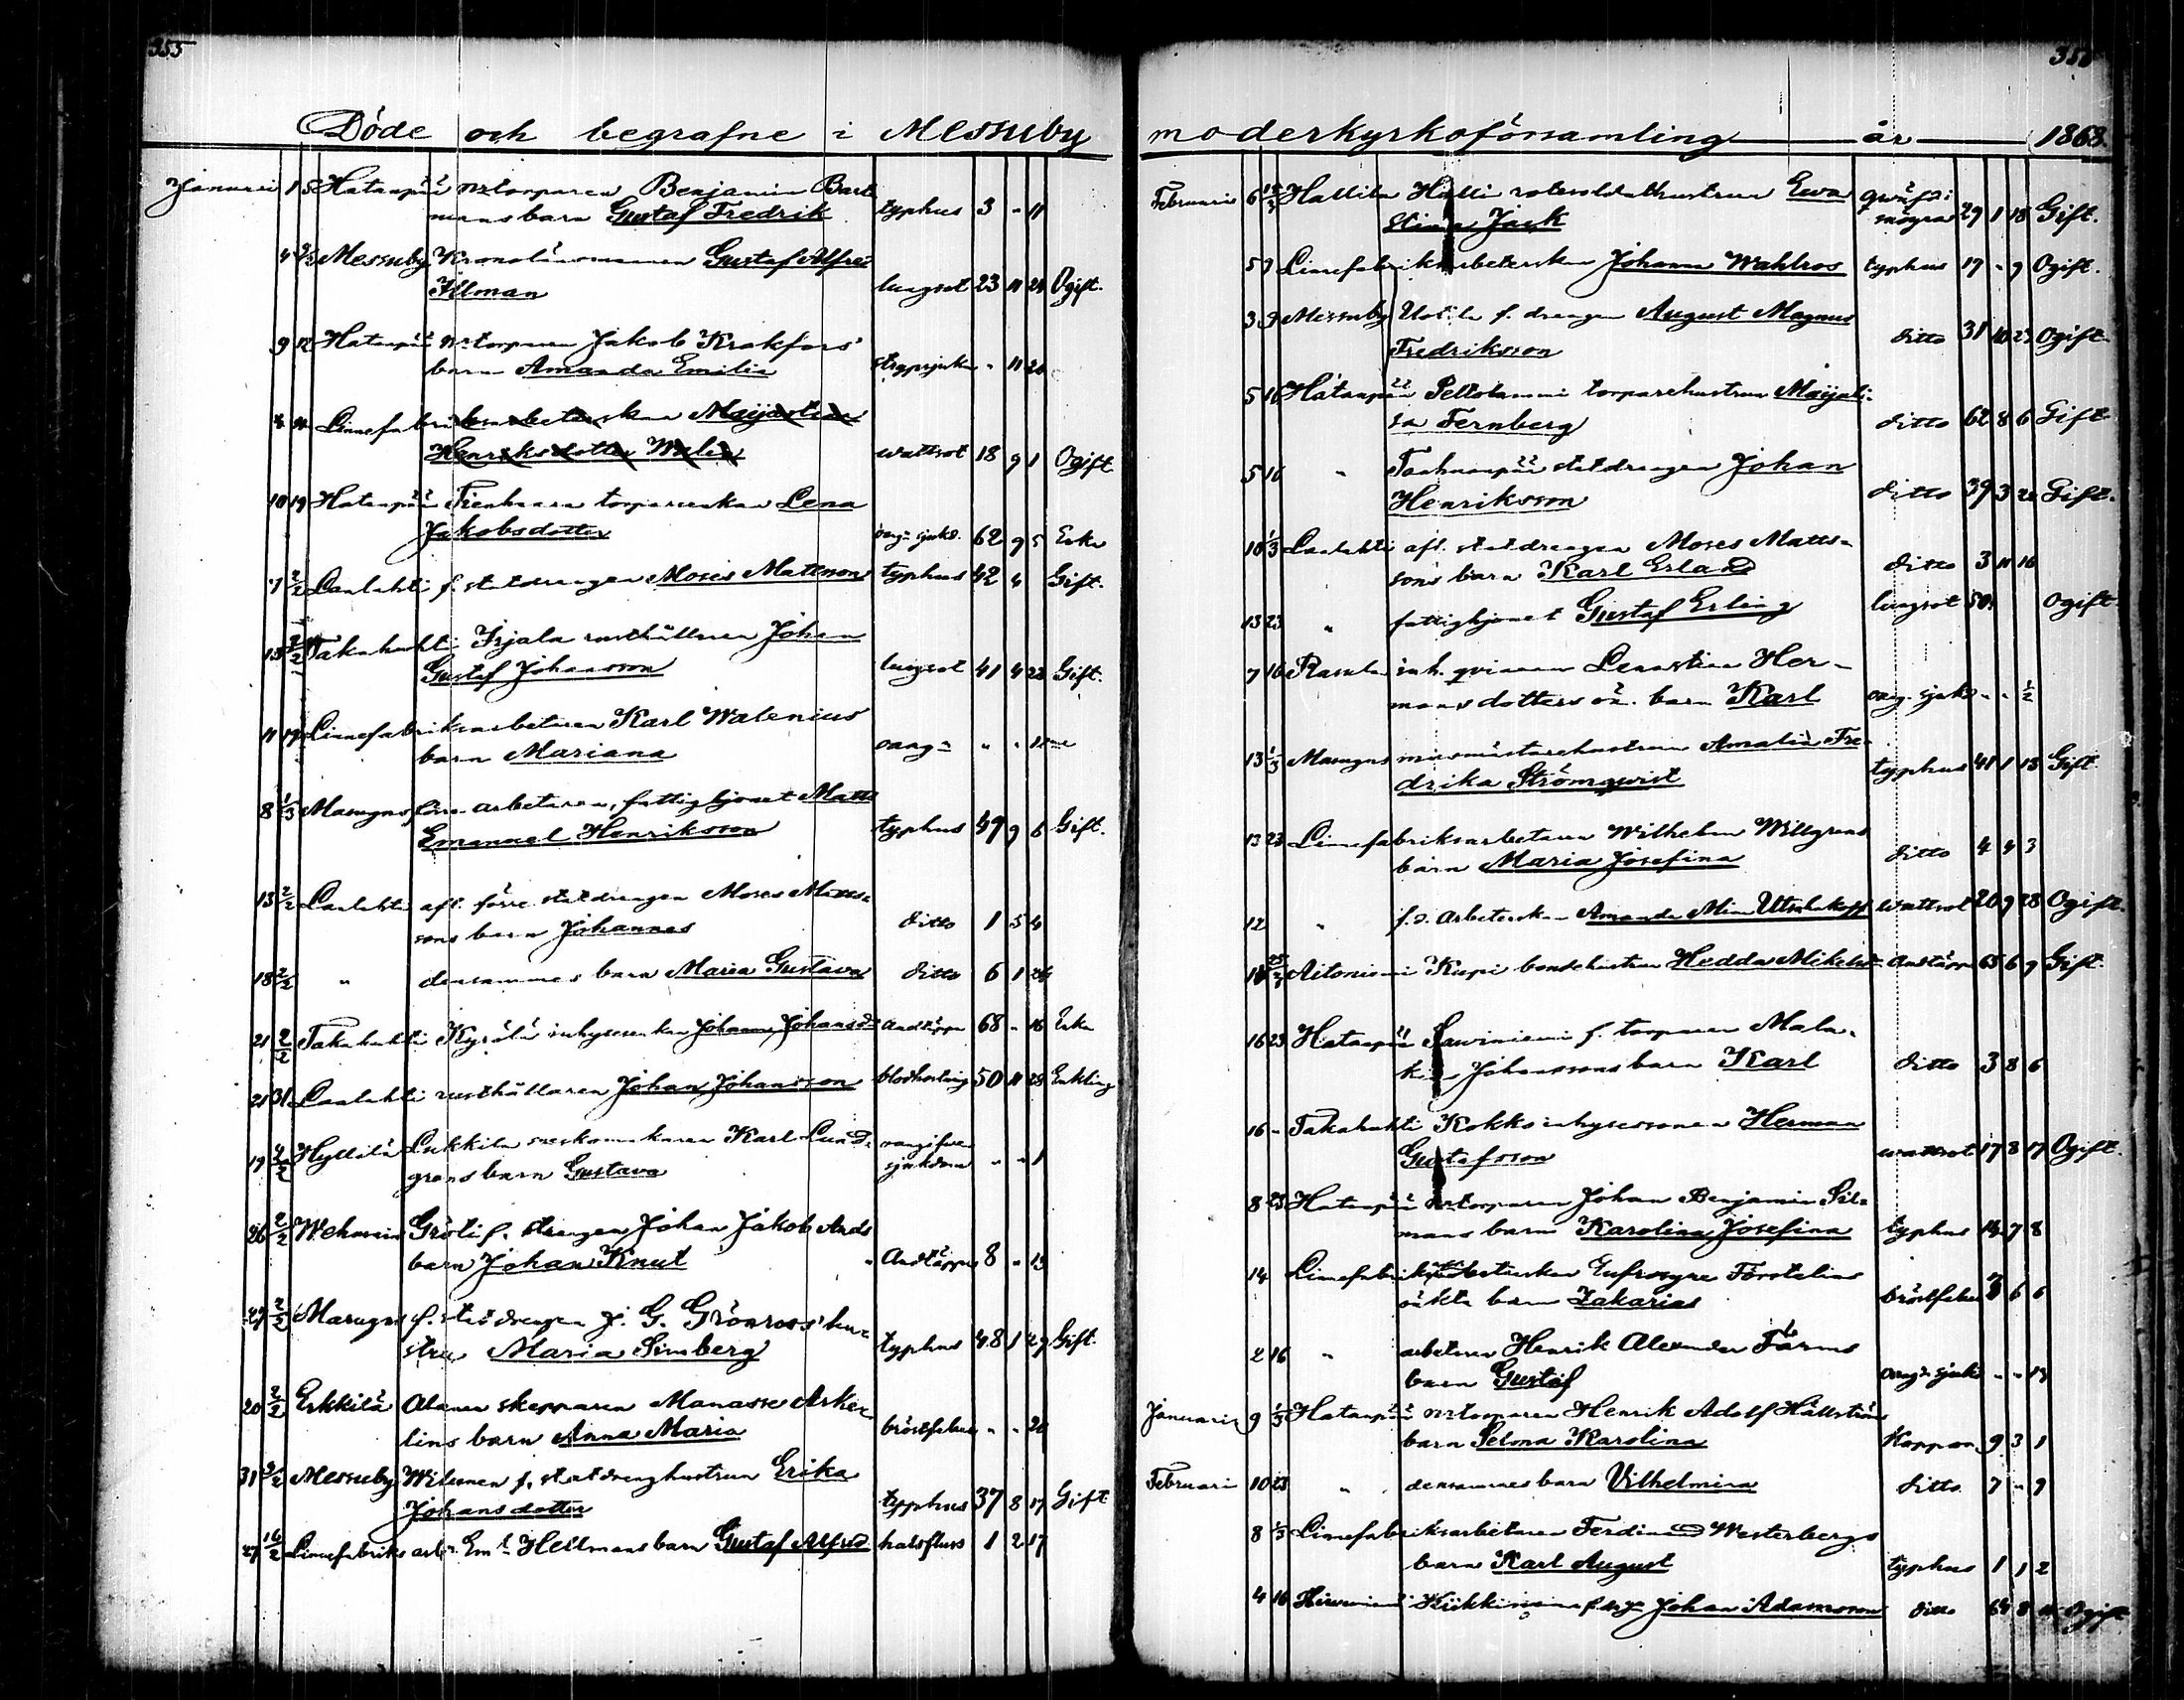 355
Döde och begrafne i Messuby
Januari 1 5 Hatanpää torparen Benjamin
mans barn Gustaf Fredrik typhus 3 - 11
4 2/2 Messuby Kronolänsmannen Gustaf Alfred
Illman lungsot 23 11 Ogift.
9 12 Hatanpää torparen Jakob Krokfors
barn Amanda Emilia strypsjuka - 11 20
Linnefabriksarbeterskan Maijastina
Henriksdotter wattsot 18 9 1 Ogift
10 19 Hatanpää torpareenkan Lena
Jakobsdotter sjukd. 62 9 5 Enka
7 2/2 Laalahti f. statdrengen Moses Mattsson typhus 42 4 Gift.
13 2/2 Takahuhti Irjala rusthållaren Johan
Gustaf Johansson lungsot 41 4 23 Gift.
11 19 Linnefabriksarbetaren Karl Walenius
barn Mariana oang. - -
8 1/3 Masugns förre arbetaren, fattighjonet Matts
Emanuel Henriksson typhus 49 9 6 Gift.
13 2/2 Laalahti afl. förre statdrengen Moses Matts-
sons barn Johannes ditto 1 5 4
18 2/2 " densammes barn Maria Gustava ditto 6 1 24
21 2/2 Takahuhti Kyrölä inhysesenkan Johanna Johansd. Andtäppa 68 - 16 Enka
21 31 Laalahti rusthållaren Johan Johansson blodhostning 50 11 28 Enkling
19 2/2 Hyllilä Lukkila Karl Lund- oangifven
grens barn Gustava sjukdom - - 1
26 2/2 Gröti f. drengen Johan Jakob
barn Johan Knut Andtäppa 8 - 13
27 2/2 Masugns f. statdrengen J. G. Grönroos' hu-
stru Maria Simberg typhus 48 1 29 Gift.
20 2/2 Erkkilä skepparen Manasse Asker-
lins barn Anna Maria bröstfeber - - 20
31 2/2 Messuby f. statdrenghustrun Erika
Johansdotter typhus 37 8 17 Gift
27 16/2 Linnefabriks arb. Em. Hellmans barn Gustaf Alfred halsfluss 1 2 17
356
moderkyrkoförsamling år 1868.
Februari 6 Hallila Halli rotesoldathustrun Ewa
Stina Jack 29 1 18 Gift.
5 9 Linnefabriksarbeterskan Johanna Wahlros typhus 17 - 9 Ogift.
3 9 Messuby Uotila f. drengen August Magnus
Fredriksson ditto 31 10 23 Ogift.
5 16 Hatanpää Peltolammi torparehustrun Maijali-
sa Fernberg ditto 62 8 6 Gift
5 16 " statdrengen Johan
Henriksson ditto 39 3 Gift.
10 1/3 Laalahti afl. statdrengen Moses Matts-
sons barn Karl Erland ditto 3 11 16
13 23 " fattighjonet Gustaf Erling lungsot 50 Ogift.
7 16 inh. qvinnan Lenastina Her-
mansdotters oä. barn Karl oang. sjukd. - - 1/2
13 1/3 Masugns Amalia Fre-
drika Strömqvist typhus 41 1 13 Gift
13 23 Linnefabriksarbetaren Wilhelm Willgrens
barn Maria Josefina ditto 4 4 3
12 " f.d. arbeterskan Amanda Mina wattsot 20 9 28 Ogift.
Aitoniemi Kupi bondehustrun Hedda Andtäppa 65 6 9 Gift.
16 23 Hatanpää Sawiniemi f. torparen Mala-
Johanssons barn Karl ditto 3 8 6
16 - Takahuhti Kokko inhysessonen Herman
Gustafsson wattsot 17 8 17 Ogift.
8 23 Hatanpää torparen Johan Benjamin Sil-
mans barn Karolina Josefina typhus 7 8
14 Linnefabriksarbeterskan Eufrosyne
oäkta barn Zakarias bröstfeber 6 6
2 16 " arbetaren Henrik Alexander
barn Gustaf oang. sjukd. - - 13
Januari 9 1/3 Hatanpää torparen Henrik Adolf Hällströms
barn Selma Karolina Koppor 9 3 1
Februari 10 23 " densammes barn Vilhelmina ditto 7 - 9
8 1/3 Linnefabriksarbetaren Ferdinand Westerbergs
barn Karl August typhus 1 1 2
4 16 Johan Adamsson ditto 64 8 Ogift